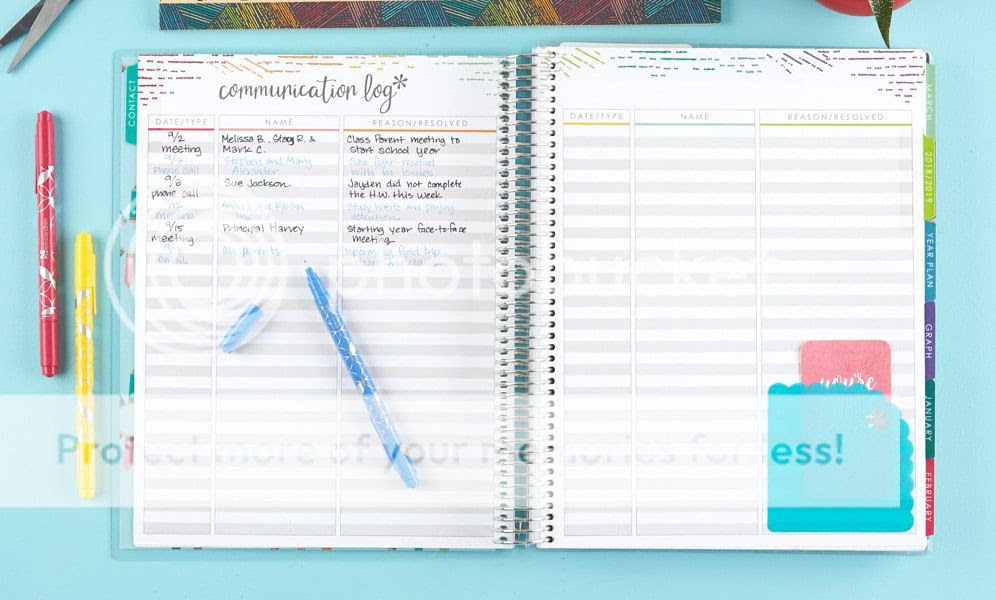 communication log*
CONTACT
DATE/TYPE NAME REASON/RESOLVED
9/2 Melissa B., Stacy R. & Class Parent meeting to
meeting Mark C. start school year
9/7 Stephen and Mary Class fight-resolved
phone call Alexander with no issues
9/8 Sue Jackson Jayden did not complete
phone call the H.W. this week
9/12 and Karina Study habits and paying
meeting attention
9/15 Principal Harvey starting year face-to-face
meeting meeting
email all parents upcoming field trip
DATE/TYPE NAME REASON/RESOLVED
MARCH
2018/2019
YEAR PLAN
GRAPH
JANUARY
FEBRUARY
you're
photobucket
Protect more of your memories for less!